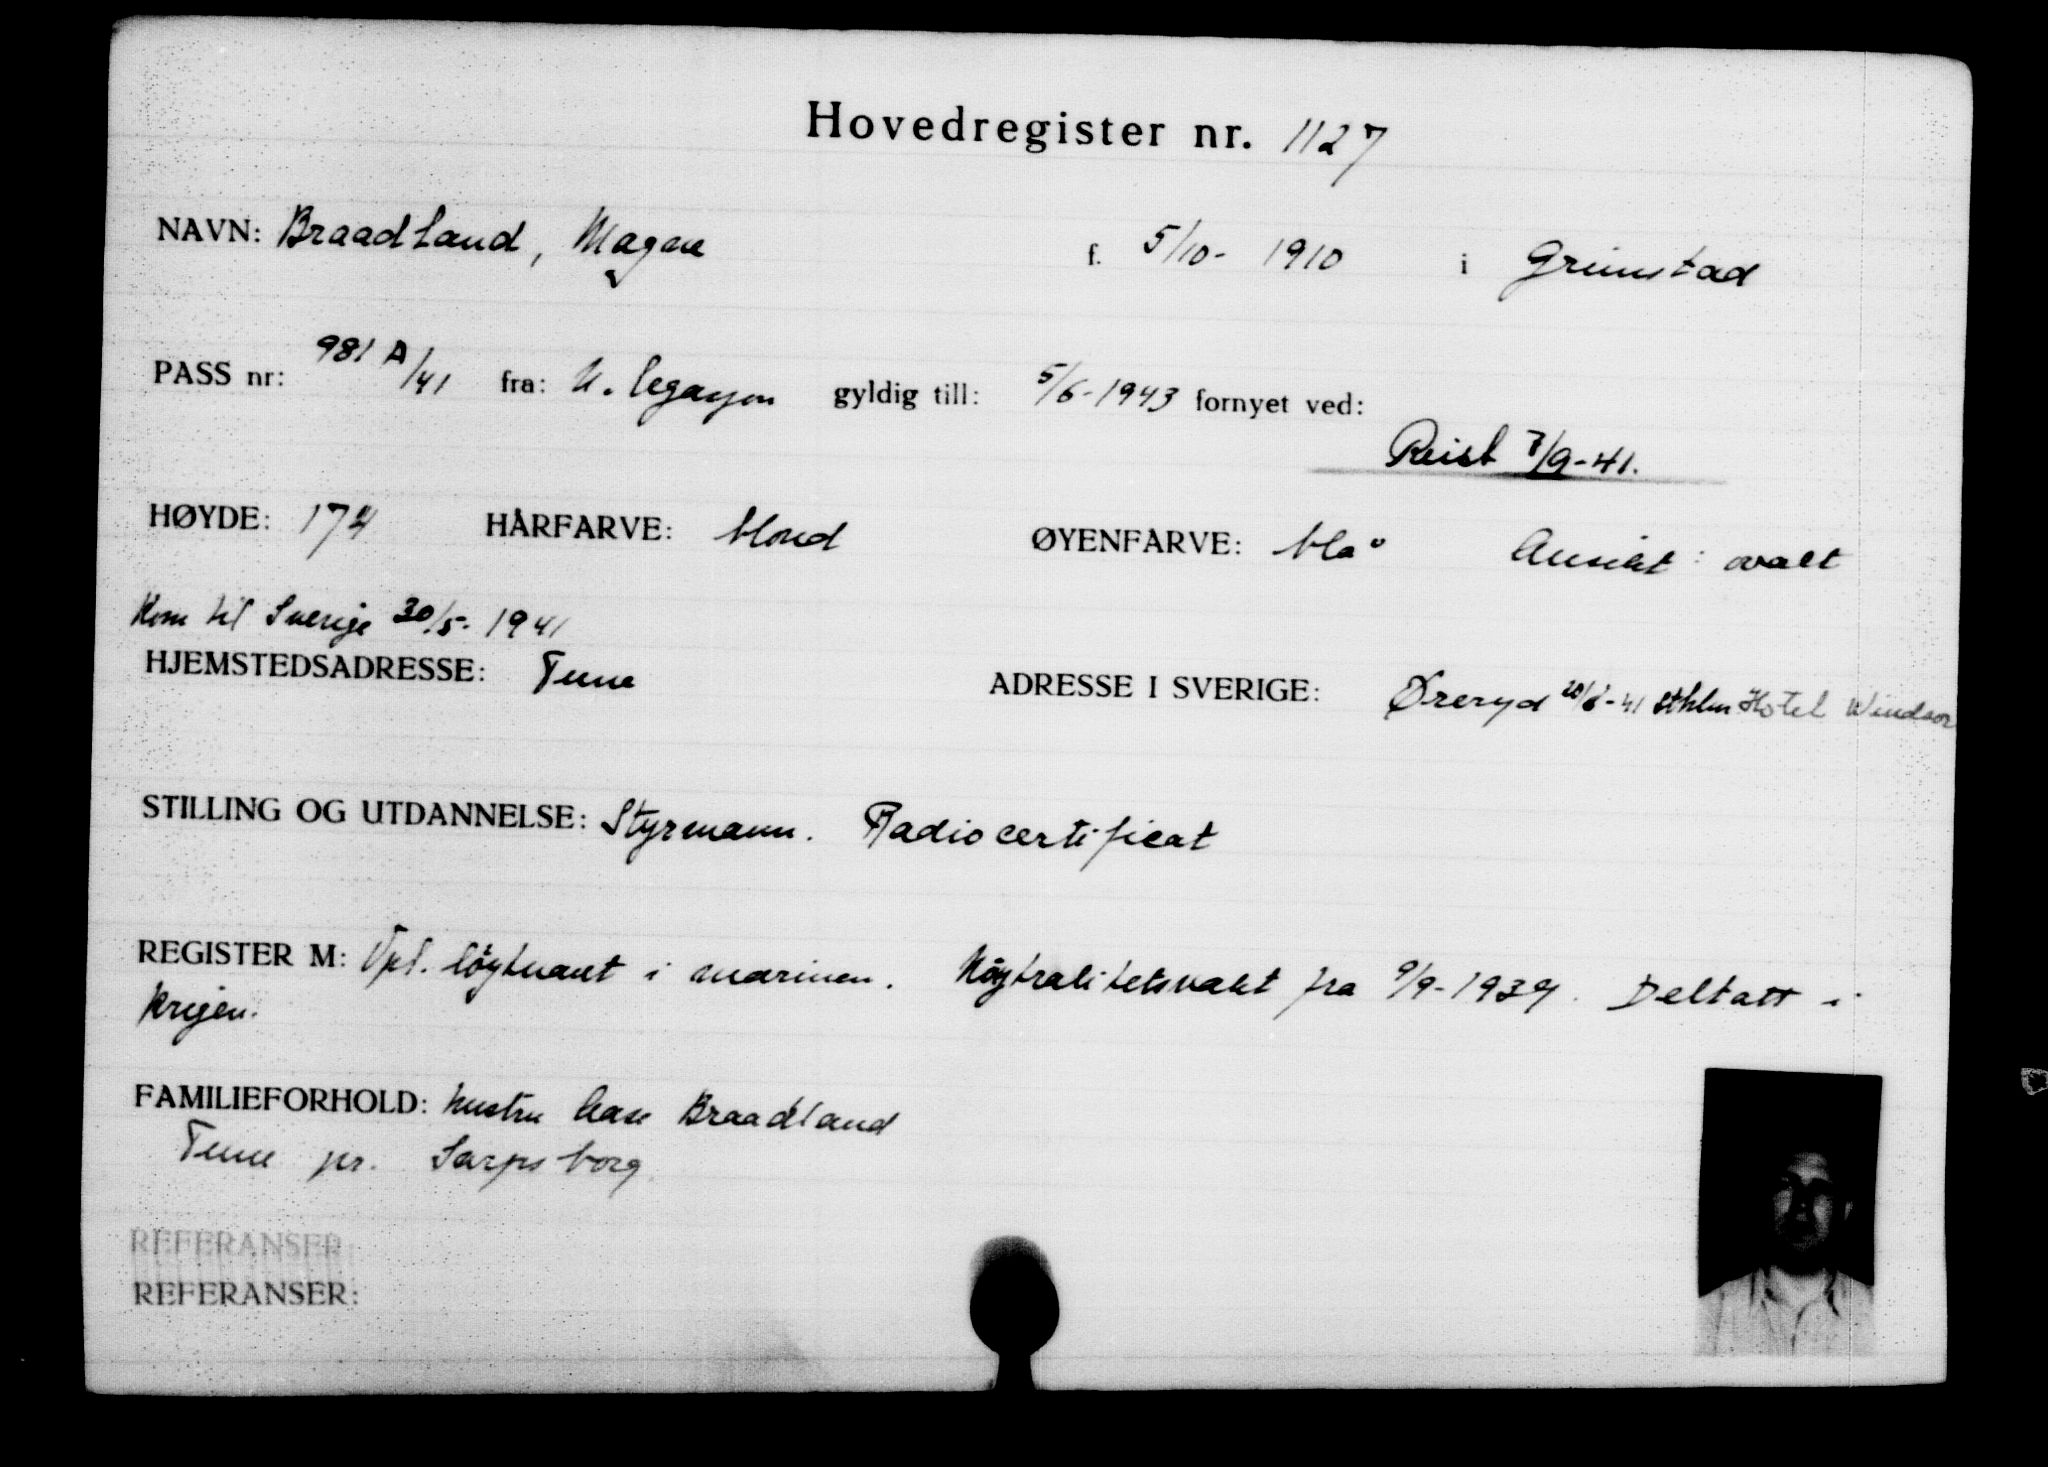 Hovedregister nr. 1127
NAVN: Braadland, Magne f. 5/10- 1910 i Grimstad
PASS nr: 981 A/41 fra: N. legasjon gyldig till: 5/6-1943 fornyet ved:
Reist 7/9-41.
HØYDE: 174 HÅRFARVE: blond ØYENFARVE: blå Ansikt: ovalt
Kom til Sverige 30/5- 1941
HJEMSTEDSADRESSE: Tune ADRESSE I SVERIGE: Øreryd 20/6-41 Sthlm Hotel Windsor
STILLING OG UTDANNELSE: Styrmann. Radiocertificat
REGISTER M: Vpl. løytnant i marinen. Nøytralitetsvakt fra 9/9-1939. Deltatt i
krigen.
FAMILIEFORHOLD: hustru Aase Braadland
Tune pr. Sarpsborg
REFERANSER
REFERANSER: